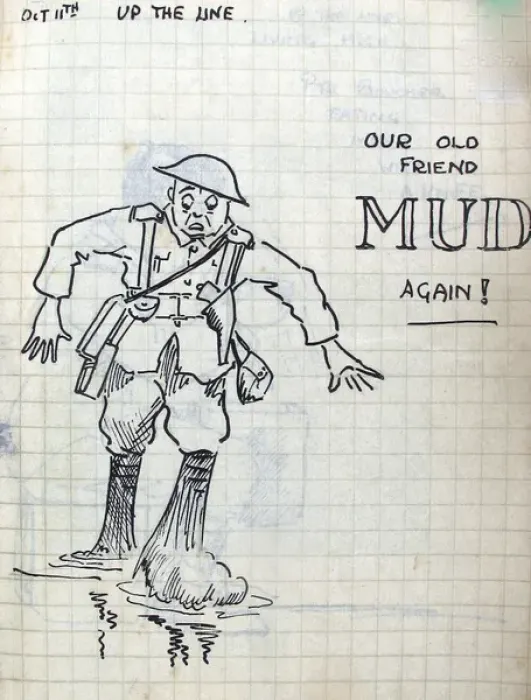 OCT 11TH UP THE LINE.
OUR OLD
FRIEND
MUD
AGAIN!